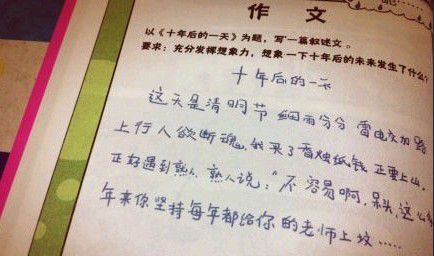 作 文
以《十年后的一天》为题，写一篇叙述文。
要求：充分发挥想象力，想象一下十年后的未来发生了什么？
十年后的一天
这天是清明节 细雨分分 雷电交加 路
上行人欲断魂，我买了香烛纸钱 正要上山，
正好遇到熟人，熟人说："不容易啊，呆头，这么多
年来你坚持每年都给你的老师上坟……